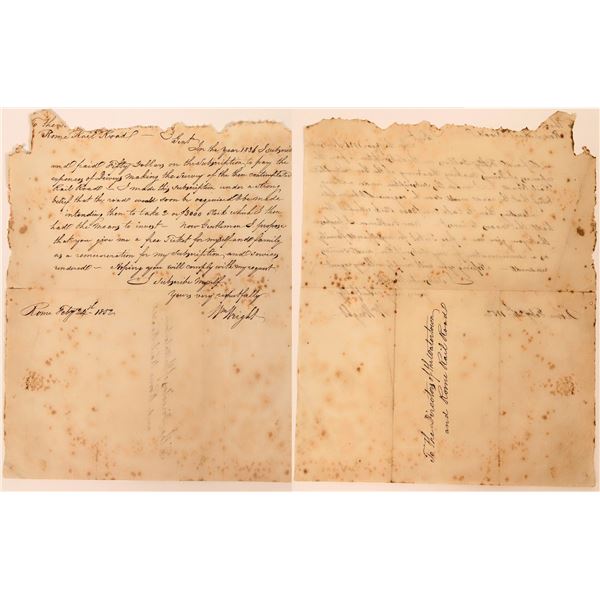 To the
Rome Rail Road –
Gent
In the year 1836 I subscribed
and paid Fifty Dollars on the subscription to pay the
expences of making the survey of the then contemplated
Rail Road I made the subscription under a strong
belief that the road would soon be required & be made
intending then to take 2 or $3000 stock which I then
had the means to invest – now Gentlemen I propose
that you give me a free Ticket for myself and family
as a remuneration for my subscription, and services
rendered – Hoping you will comply with my request
I subscribe myself
Yours very respectfully
Wm Wright
Rome Feby 24th 1852
To the Directors of the Watertown
and Rome Rail Road